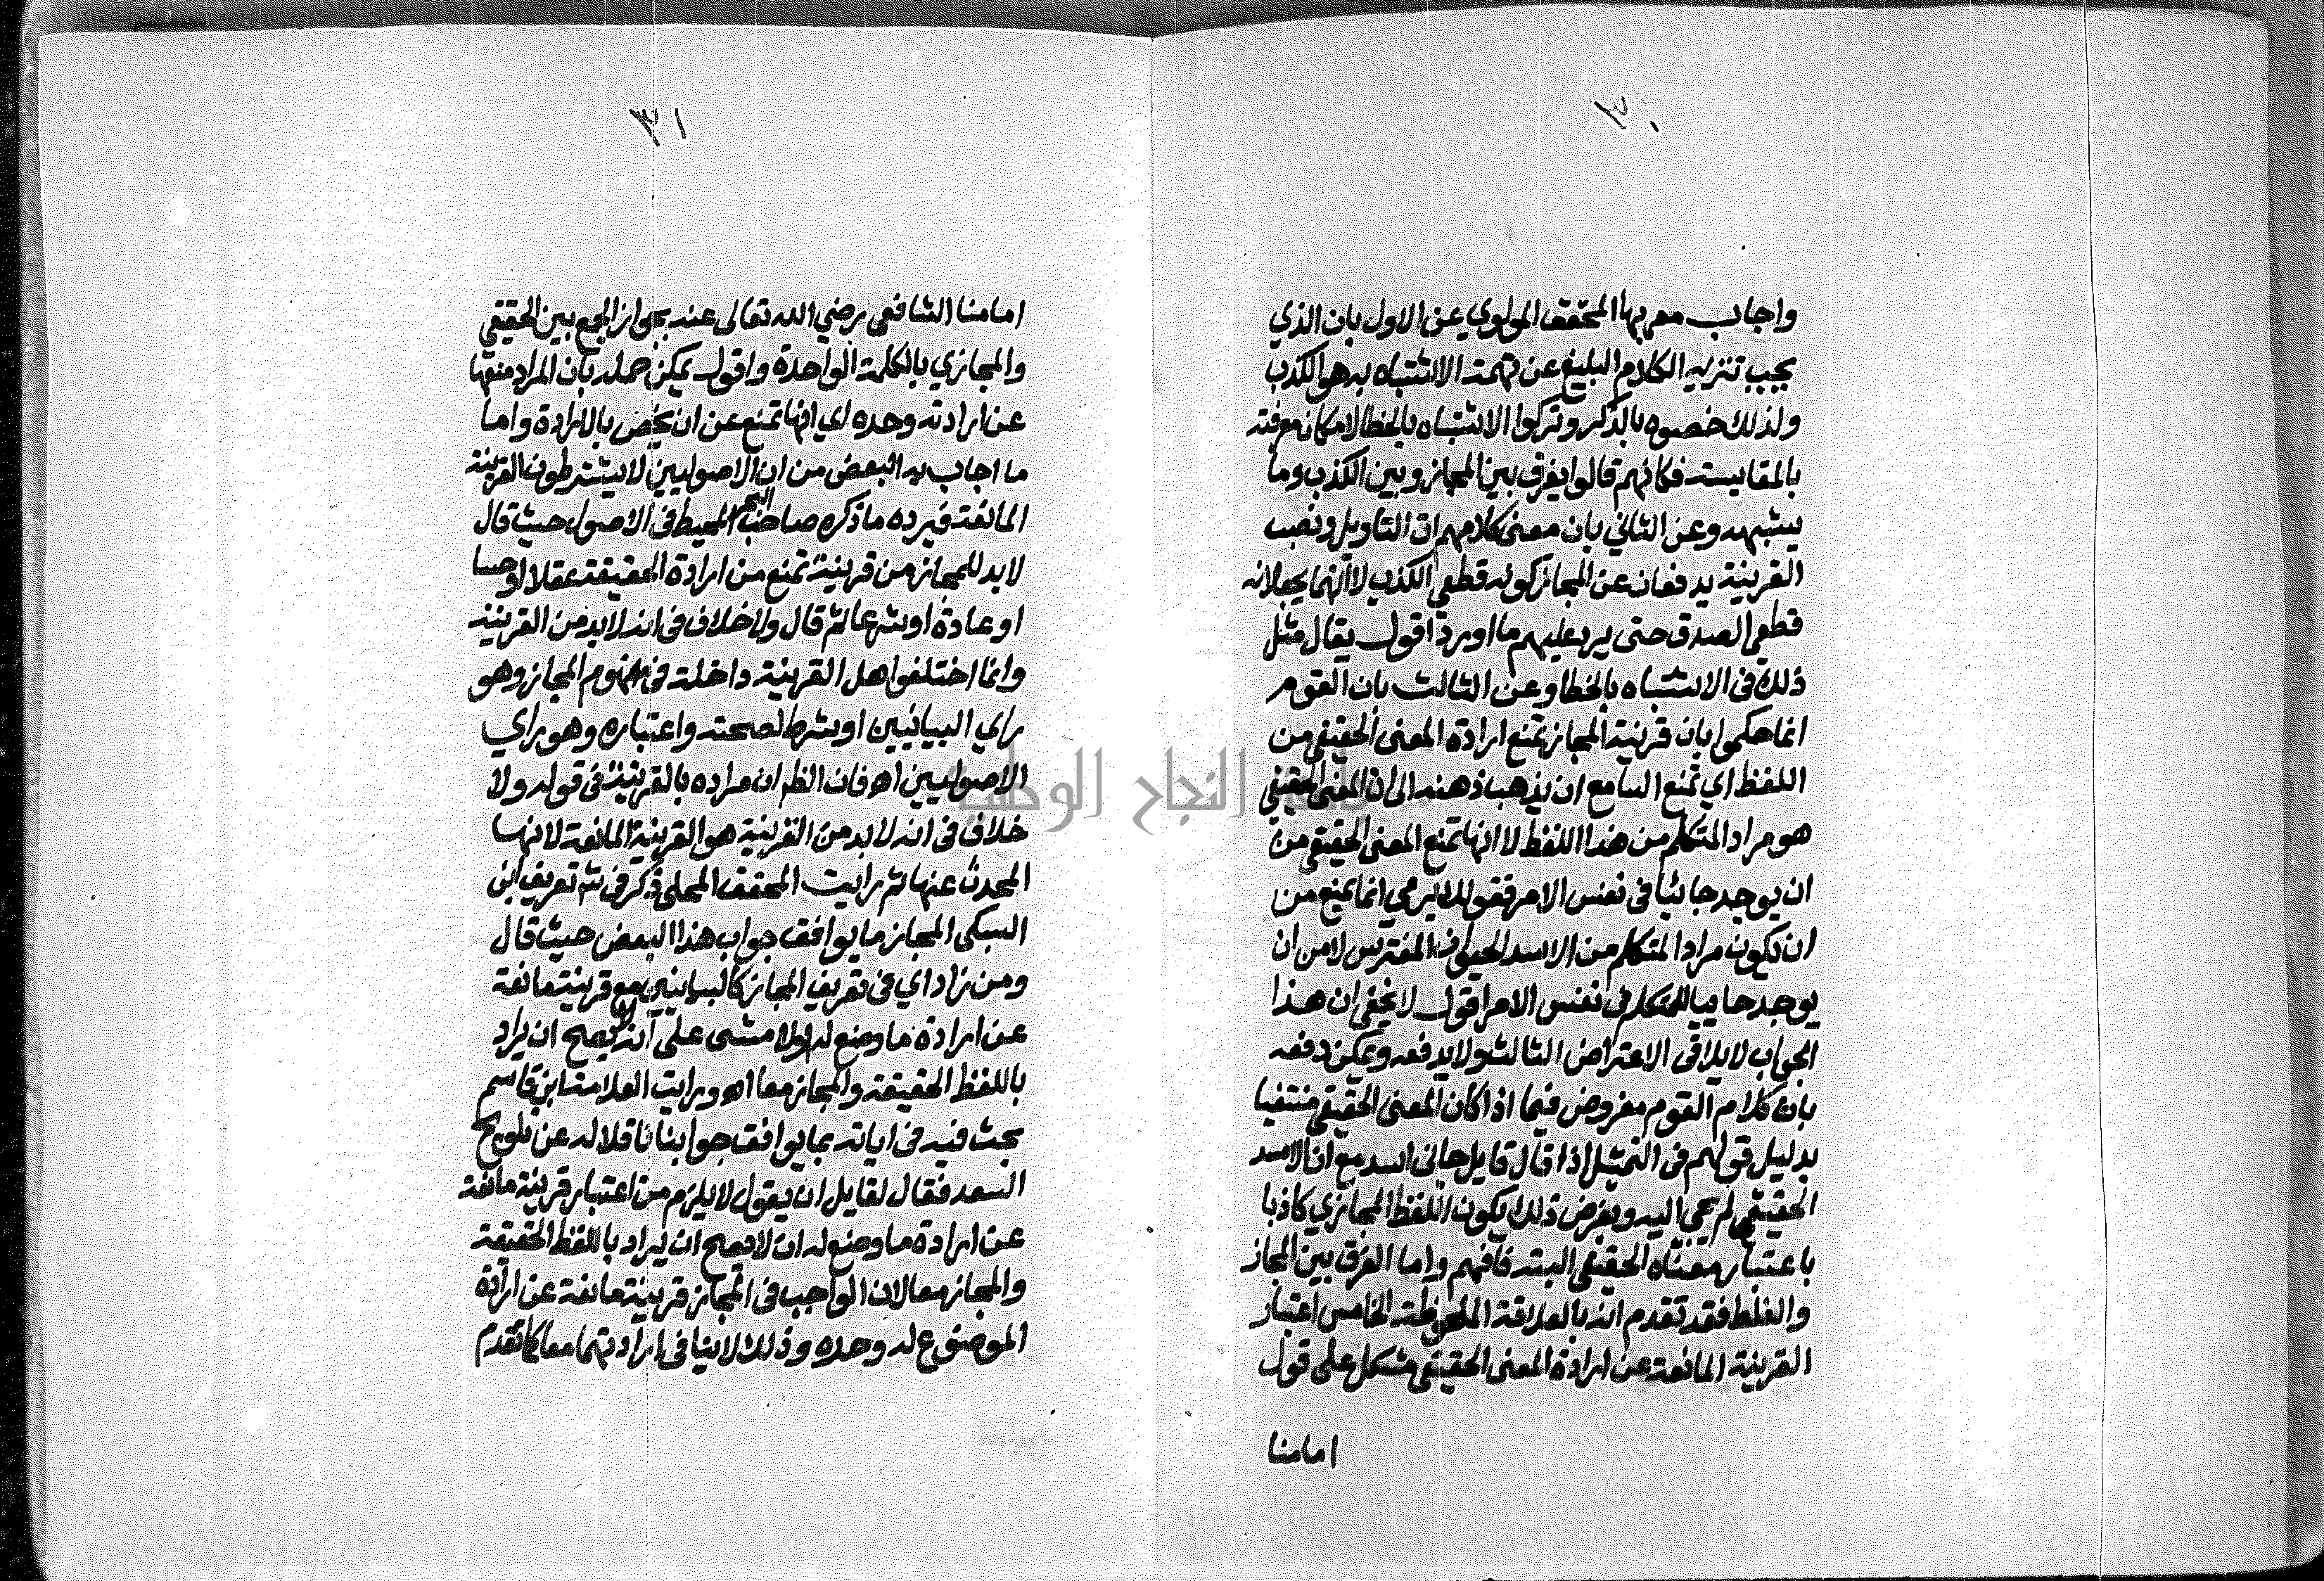 ٣٠
واجاب معربها المحقق المولوي عن الاول بان الذي
يجب تنزيه الكلام البليغ عن تهمة الاشتباه به هو الكذب
ولذلك خصوه بالذكر وتركوا الاشتباه بالخطا لامكان معرفته
بالمقايسة فكانهم قالوا يفرق بين المجاز وبين الكذب وما
يشبهه وعن الثاني بان معنى كلامهم ان التاويل ونصب
القرينة يدفعان عن المجاز كونه قطعي الكذب لا انهما يجعلانه
قطعي الصدق حتى يرد عليهم ما اورد اقول يقال مثل
ذلك في الاشتباه بالخطا وعن الثالث بان القوم
انما حكموا بان قرينة المجاز تمنع ارادة المعنى الحقيقي من
اللفظ اي تمنع السامع ان يذهب ذهنه الى ان المعنى الحقيقي
هو مراد المتكلم من هذا اللفظ لا انها تمنع المعنى الحقيقي من
ان يوجد جائيا في نفس الامر فقولك يرمي انما يمنع من
ان يكون مراد المتكلم من الاسد الحيوان المفترس لا من ان
يوجد جاييا للمتكلم في نفس الامر اقول لا يخفى ان هذا
الجواب لا يلاقي الاعتراض الثالث ولا يدفعه ويمكن دفعه
بان كلام القوم مفروض فيما اذا كان المعنى الحقيقي منتفيا
بدليل قولهم في التمثيل اذا قال قايل جاني اسد مع ان الاسد
الحقيقي لم يجي اليه وبفرض ذلك يكون اللفظ المجازي كاذبا
باعتبار معناه الحقيقي البته فافهم واما الفرق بين المجاز
والغلط فقد تقدم انه بالعلاقة الملحوظة الخامس اعتبار
القرينة المانعة عن ارادة المعنى الحقيقي مشكل على قول
امامنا
٣١
امامنا الشافعي رضي الله تعالى عنه بجواز الجمع بين الحقيقي
والمجازي بالكلمة الواحدة واقول يمكن حمله بان المراد منعها
عن ارادته وحده اي انها تمنع عن ان يخص بالارادة واما
ما اجاب به البعض من ان الاصوليين لا يشترطون القرينة
المانعة فيرده ما ذكره صاحب البحر المحيط في الاصول حيث قال
لا بد للمجاز من قرينة تمنع من ارادة الحقيقة عقلا او حسا
او عادة او شرعا ثم قال ولا خلاف في انه لا بد من القرينة
وانما اختلفوا هل القرينة داخلة في مفهوم المجاز وهو
راي البيانيين او شرط لصحته واعتباره وهو راي
الاصوليين اه فان الظ ان مراده بالقرينة في قوله ولا
خلاف في انه لا بد من القرينة هو القرينة المانعة لانها
المحدث عنها ثم رايت المحقق المحلي ذكر في شر تعريف ابن
السبكي المجاز ما يوافق جواب هذا البعض حيث قال
ومن زاد اي في تعريف المجاز كالبيانيين مع قرينة مانعة
عن ارادة ما وضع له اولا مشى على انه لا يصح ان يراد
باللفظ الحقيقة والمجاز معا اه ورايت العلامة ابن قاسم
بحث فيه في اياته بما يوافق جوابنا ناقلا له عن تلويح
السعد فقال لقايل ان يقول لا يلزم من اعتبار قرينة مانعة
عن ارادة ما وضع له ان لا يصح ان يراد باللفظ الحقيقة
والمجاز معا لان الواجب في المجاز قرينة مانعة عن ارادة
الموضوع له وحده وذلك لا ينافي ارادتهما معا كما تقدم